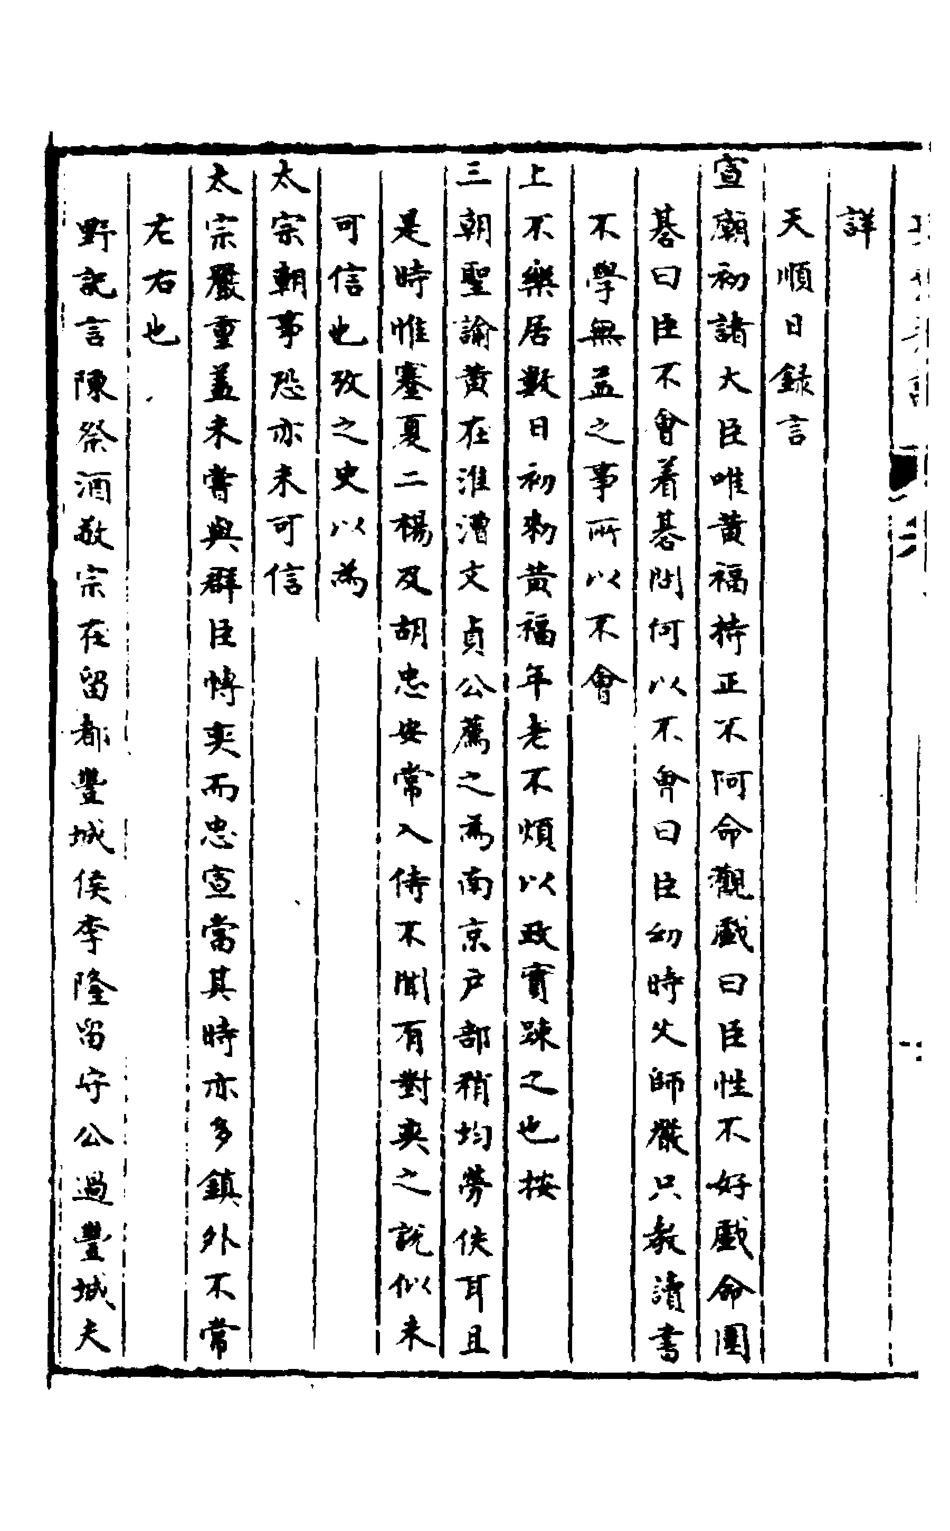 詳
天順日録言
宣廟初諸大臣唯黄福持正不阿命觀戲曰臣性不好戲命圍
碁曰臣不會着碁問何以不會曰臣幼時父師嚴只教讀書
不學無益之事所以不會
上不樂居數日初勑黄福年老不煩以政實疎之也按
三朝聖諭黄在淮漕文貞公薦之為南京户部稍均勞佚耳且
是時惟蹇夏二楊及胡忠安常入侍不聞有對奕之説似未
可信也攷之史以為
太宗朝事恐亦未可信
太宗嚴重盖未嘗與群臣慱奕而忠宣當其時亦多鎮外不常
左右也
野記言陳祭酒敬宗在留都豐城侯李隆留守公過豐城夫